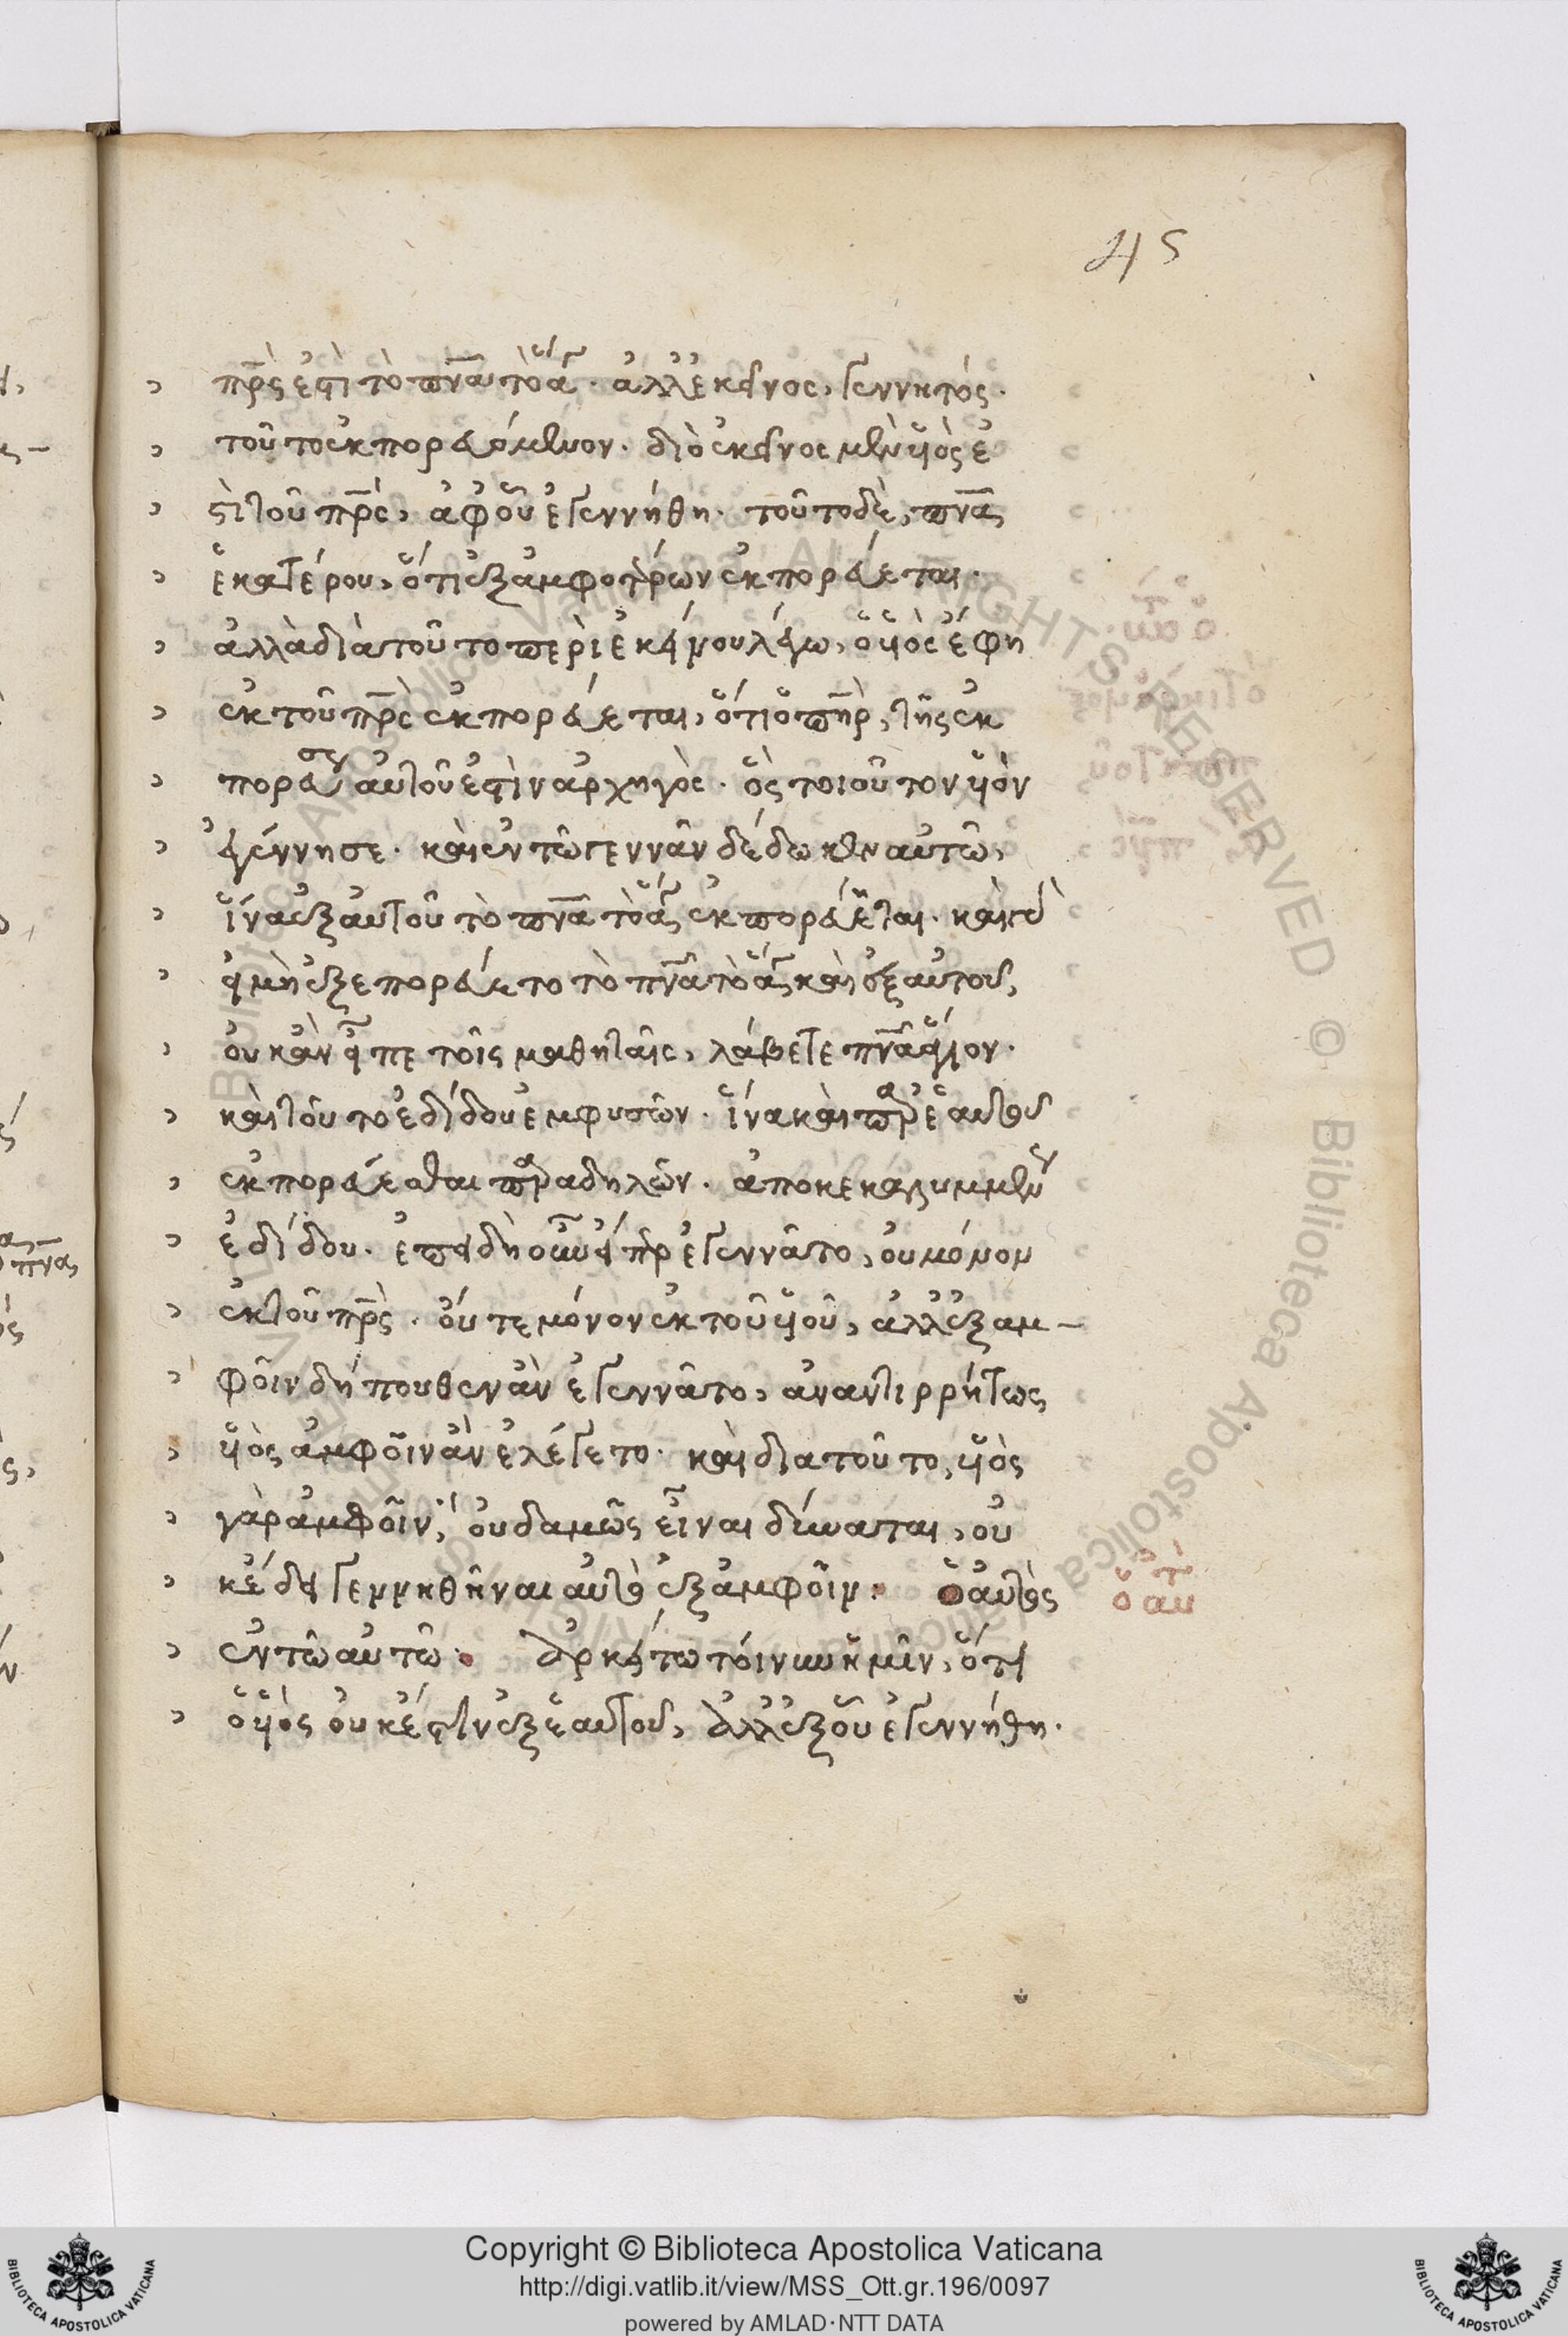 45
πρς ἐστὶ τὸ πνα τὸ ἅγ. ἀλλ' ἐκεῖνος, γεννητός.
τοῦτο ἐκπορευόμενον. διὸ ἐκεῖνος μὲν υἱὸς ἐ
στὶ τοῦ πρς, ἀφ' οὗ ἐγεννήθη. τοῦτο δὲ, πνα
ἑκατέρου, ὅτι ἐξ ἀμφοτέρων ἐκπορεύεται.
ἀλλὰ διὰ τοῦτο περὶ ἐκείνου λέγων, ὁ υἱὸς ἔφη
ἐκ τοῦ πρς ἐκπορεύεται, ὅτι ὁ πηρ, τῆς ἐκ
πορεύσεως αὐτοῦ ἐστὶν ἀρχηγὸς. ὃς τοιοῦτον υἱὸν
ἐγέννησε. καὶ ἐν τῶ γεννᾶν δέδωκεν αὐτῶ,
ἵνα ἐξ αὐτοῦ τὸ πνα τὸ ἅγ ἐκπορεύηται. καὶ γὰρ
εἰ μὴ ἐξεπορεύετο τὸ πνα τὸ ἅγ καὶ ἐξ αὐτοῦ,
οὐκ ἂν εἶπε τοῖς μαθηταῖς, λάβετε πνα ἅγιον.
καὶ τοῦτο ἐδίδου ἐμφυσῶν. ἵνα καὶ παρ' ἑαυτοῦ
ἐκπορεύεσθαι παραδηλῶν. ἀποκεκαλυμμένως
ἐδίδου. ἐπειδὴ οὖν εἴπερ ἐγεννᾶτο, οὐ μόνον
ἐκ τοῦ πρς. οὔτε μόνον ἐκ τοῦ υἱοῦ, ἀλλ' ἐξ ἀμ-
φοῖν δήπουθεν ἂν ἐγεννᾶτο, ἀναντιρρήτως
υἱὸς ἀμφοῖν ἂν ἐλέγετο. καὶ διατοῦτο, υἱὸς
γὰρ ἀμφοῖν, οὐδαμῶς εἶναι δύναται, οὐ
κ' ἔδει γεννηθῆναι αὐτὸ ἐξ ἀμφοῖν. ὁ αὐτὸς
ἐν τῶ αὐτῶ. ἀρκείτω τοίνυν ἡμῖν, ὅτι
ὁ υἱὸς οὐκ ἔστιν ἐξ ἑαυτοῦ, ἀλλ' ἐξ οὗ ἐγεννήθη.
ὁ αὐτ
Copyright © Biblioteca Apostolica Vaticana
http://digi.vatlib.it/view/MSS_Ott.gr.196/0097
powered by AMLAD·NTT DATA